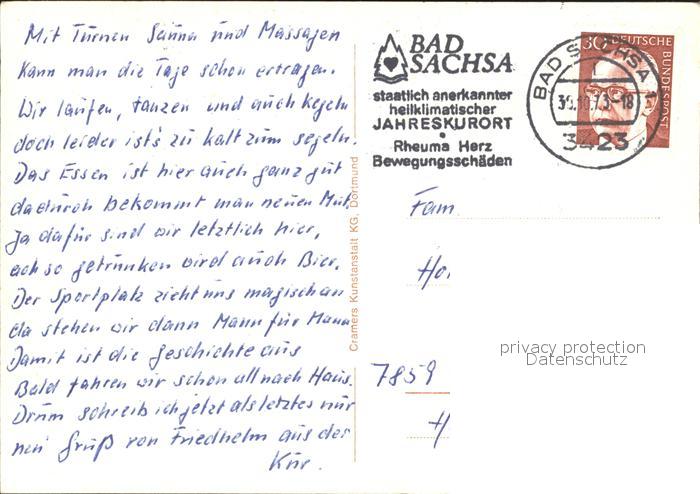 Mit Turnen Sauna und Massagen
kann man die Tage schon ertragen.
Wir laufen, tanzen und auch kegeln
doch leider ist's zu kalt zum segeln.
Das Essen ist hier auch ganz gut
dadurch bekommt man neuen Mut.
Ja dafür sind wir letztlich hier,
ach so getrunken wird auch Bier.
Der Sportplatz zieht uns magisch an
da stehen wir dann Mann für Mann
Damit ist die Geschichte aus
Bald fahren wir schon all nach Haus.
Drum schreib ich jetzt als letztes nur
nen Gruß von Friedhelm aus der
Kur.
Cramers Kunstanstalt KG, Dortmund
BAD
SACHSA
staatlich anerkannter
heilklimatischer
JAHRESKURORT
Rheuma Herz
Bewegungsschäden
BAD SACHSA 1
-18
3423
30 DEUTSCHE
BUNDESPOST
Fam
Ho
privacy protection
Datenschutz
7859
H